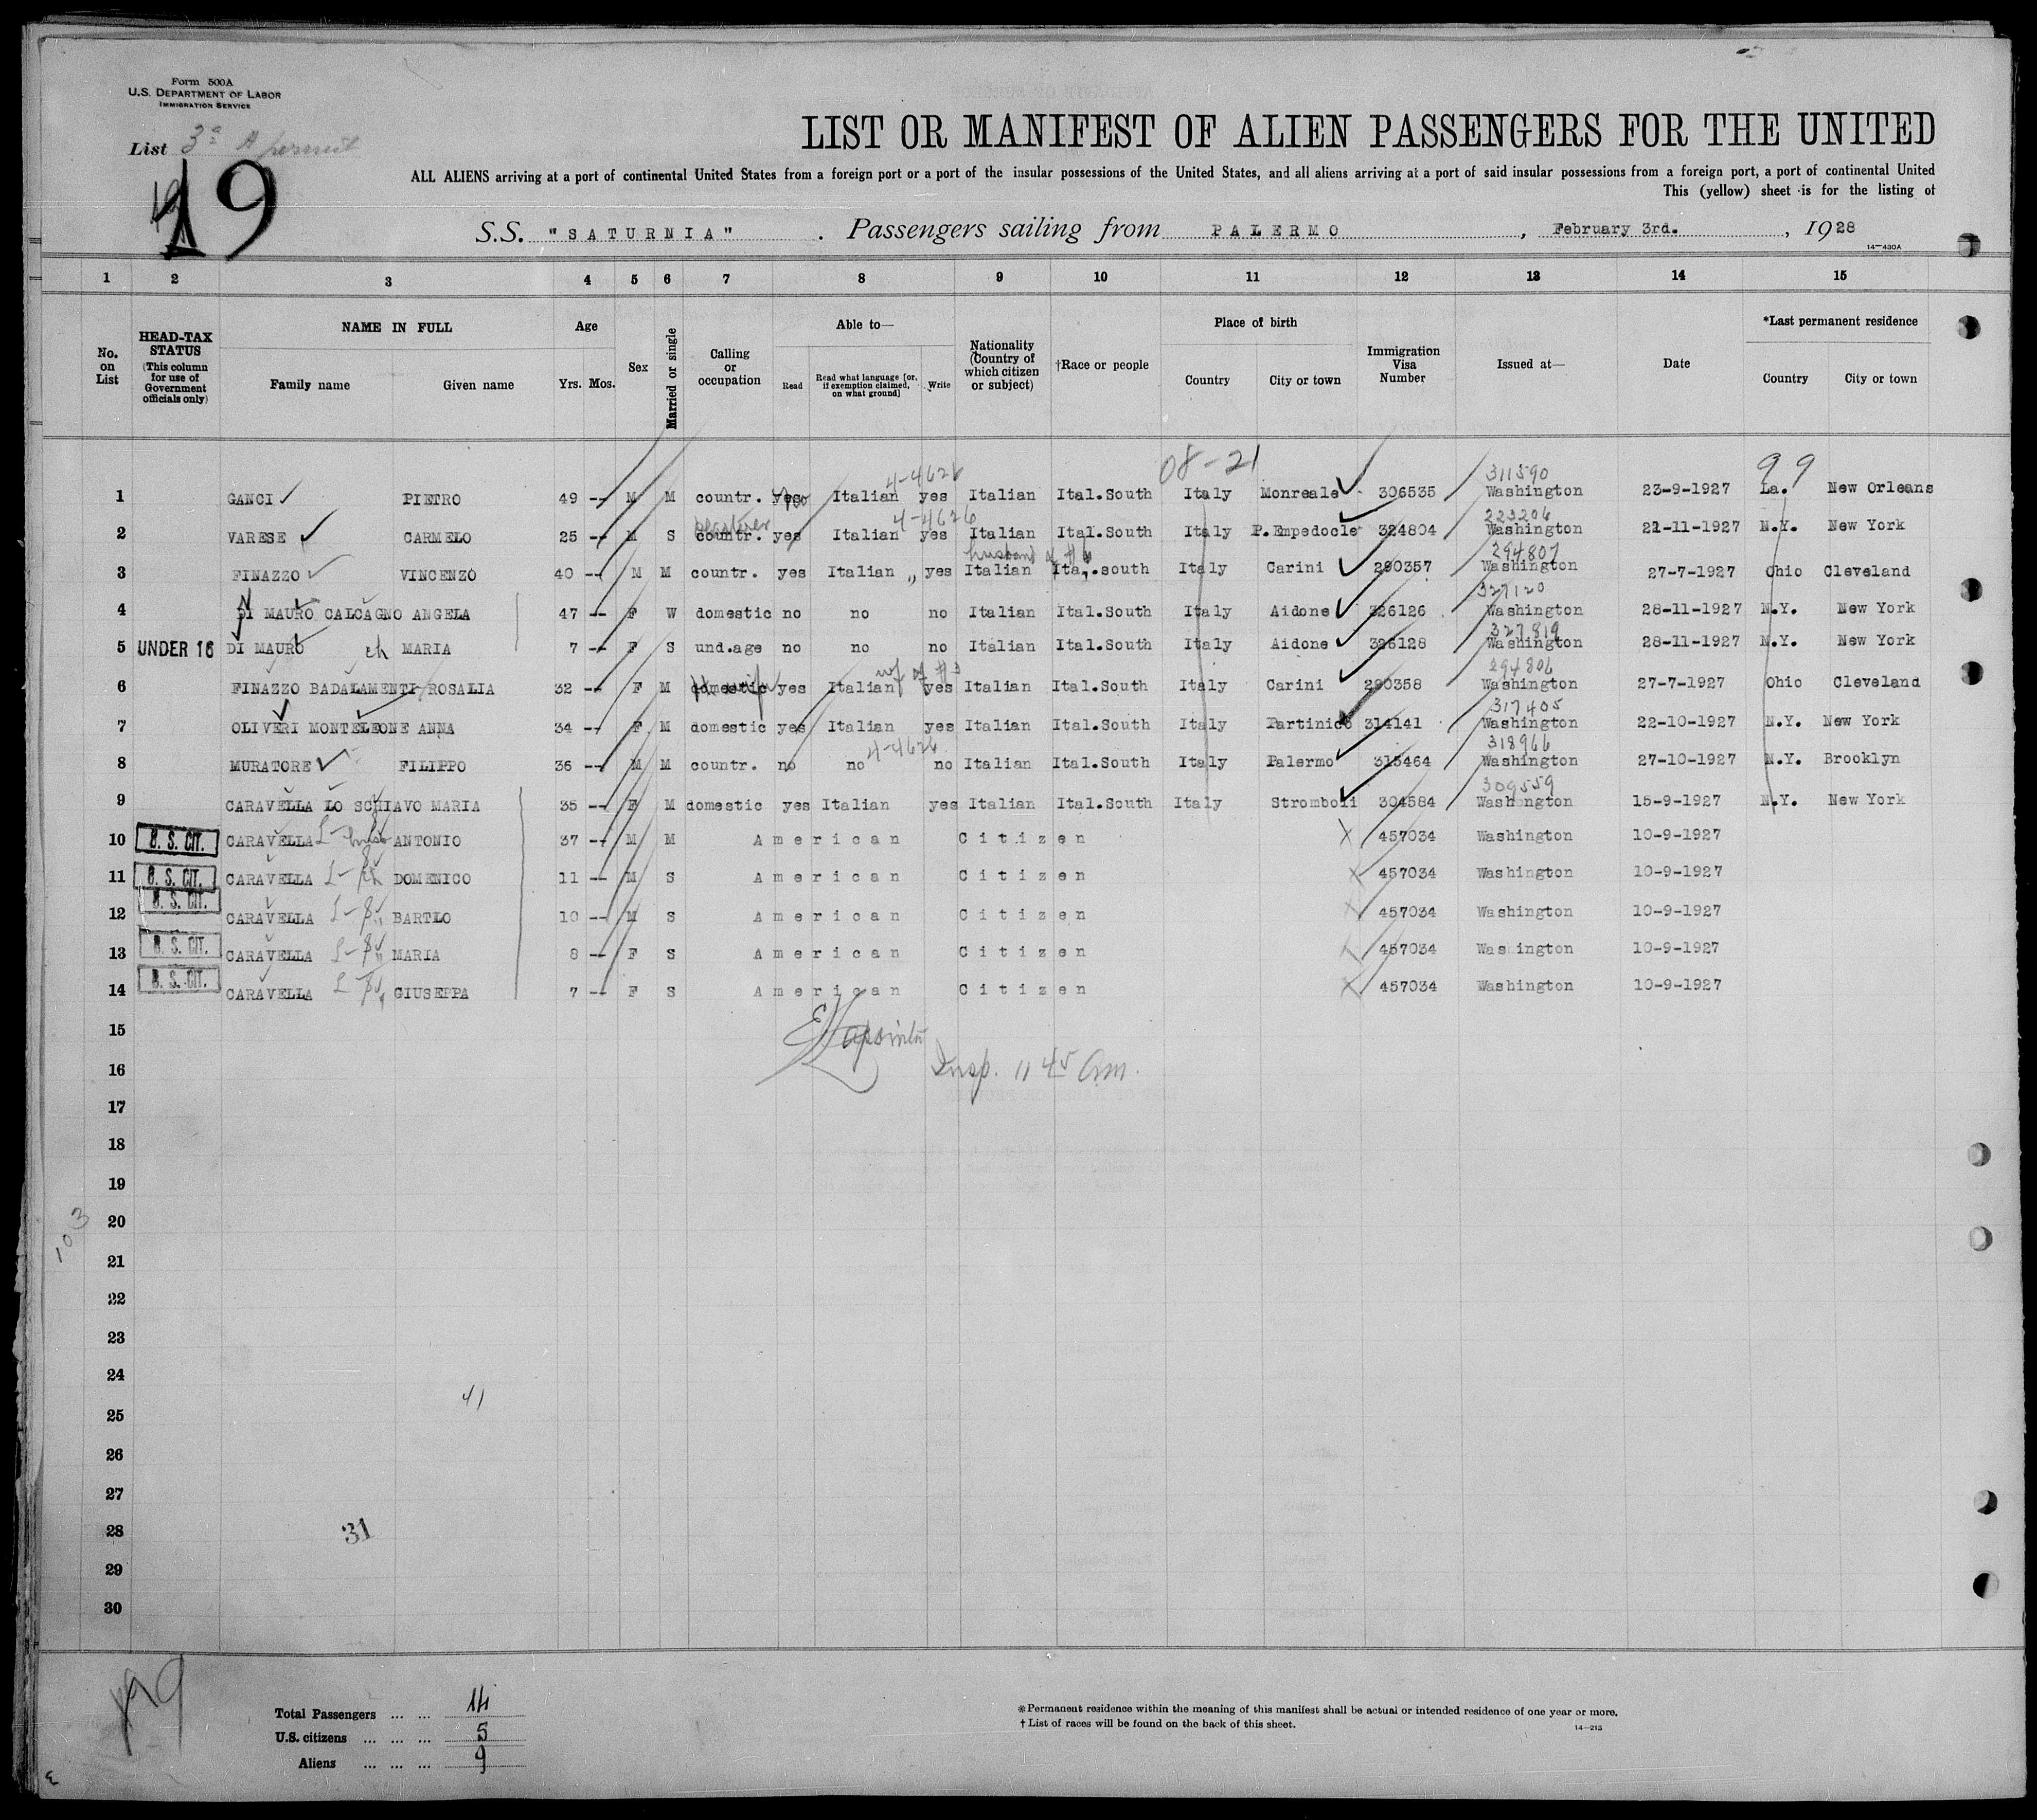 Form 500A
U.S. DEPARTMENT OF LABOR
IMMIGRATION SERVICE
List 3a A permit
19
LIST OR MANIFEST OF ALIEN PASSENGERS FOR THE UNITED
ALL ALIENS arriving at a port of continental United States from a foreign port or a port of the insular possessions of the United States, and all aliens arriving at a port of said insular possessions from a foreign port, a port of continental United
This (yellow) sheet is for the listing of
S.S. "SATURNIA". Passengers sailing from PALERMO, February 3rd., 1928
14-430A
1 2 3 4 5 6 7 8 9 10 11 12 13 14 15
No. on List
HEAD-TAX STATUS (This column for use of Government officials only)
NAME IN FULL
Family name Given name
Age
Yrs. Mos.
Sex
Married or single
Calling or occupation
Able to—
Read
Read what language [or, if exemption claimed, on what ground]
Write
Nationality (Country of which citizen or subject)
†Race or people
Place of birth
Country City or town
Immigration Visa Number
Issued at—
Date
*Last permanent residence
Country City or town
08-21 99
4-4626 311590
1 GANCI PIETRO 49 -- M M countr. yes Italian yes Italian Ital.South Italy Monreale 306535 Washington 23-9-1927 La. New Orleans
4-4626 223206
2 VARESE CARMELO 25 -- M S countr. yes Italian yes Italian Ital.South Italy P.Empedocle 324804 Washington 21-11-1927 N.Y. New York
husband of #6 294807
3 FINAZZO VINCENZO 40 -- M M countr. yes Italian yes Italian Ital.south Italy Carini 290357 Washington 27-7-1927 Ohio Cleveland
327120
4 DI MAURO CALCAGNO ANGELA 47 -- F W domestic no no no Italian Ital.South Italy Aidone 326126 Washington 28-11-1927 N.Y. New York
327819
5 UNDER 16 DI MAURO ch MARIA 7 -- F S und.age no no no Italian Ital.South Italy Aidone 326128 Washington 28-11-1927 N.Y. New York
wf of #3 294806
6 FINAZZO BADALAMENTI ROSALIA 32 -- F M domestic yes Italian yes Italian Ital.South Italy Carini 290358 Washington 27-7-1927 Ohio Cleveland
317405
7 OLIVERI MONTELEONE ANNA 34 -- F M domestic yes Italian yes Italian Ital.South Italy Partinico 314141 Washington 22-10-1927 N.Y. New York
4-4626 318966
8 MURATORE FILIPPO 36 -- M M countr. no no no Italian Ital.South Italy Palermo 315464 Washington 27-10-1927 N.Y. Brooklyn
309559
9 CARAVELLA LO SCHIAVO MARIA 35 -- F M domestic yes Italian yes Italian Ital.South Italy Stromboli 304584 Washington 15-9-1927 N.Y. New York
10 U. S. CIT. CARAVELLA ANTONIO 37 -- M M American Citizen 457034 Washington 10-9-1927
11 U. S. CIT. CARAVELLA DOMENICO 11 -- M S American Citizen 457034 Washington 10-9-1927
12 U. S. CIT. CARAVELLA BARTLO 10 -- M S American Citizen 457034 Washington 10-9-1927
13 U. S. CIT. CARAVELLA MARIA 8 -- F S American Citizen 457034 Washington 10-9-1927
14 U. S. CIT. CARAVELLA GIUSEPPA 7 -- F S American Citizen 457034 Washington 10-9-1927
15
16 Insp. 11 45 am.
17
18
19
20
103
21
22
23
24
41
25
26
27
28
31
29
30
Total Passengers ... ... 14
U.S. citizens ... ... ... 5
Aliens ... ... ... 9
*Permanent residence within the meaning of this manifest shall be actual or intended residence of one year or more.
†List of races will be found on the back of this sheet.
14-213